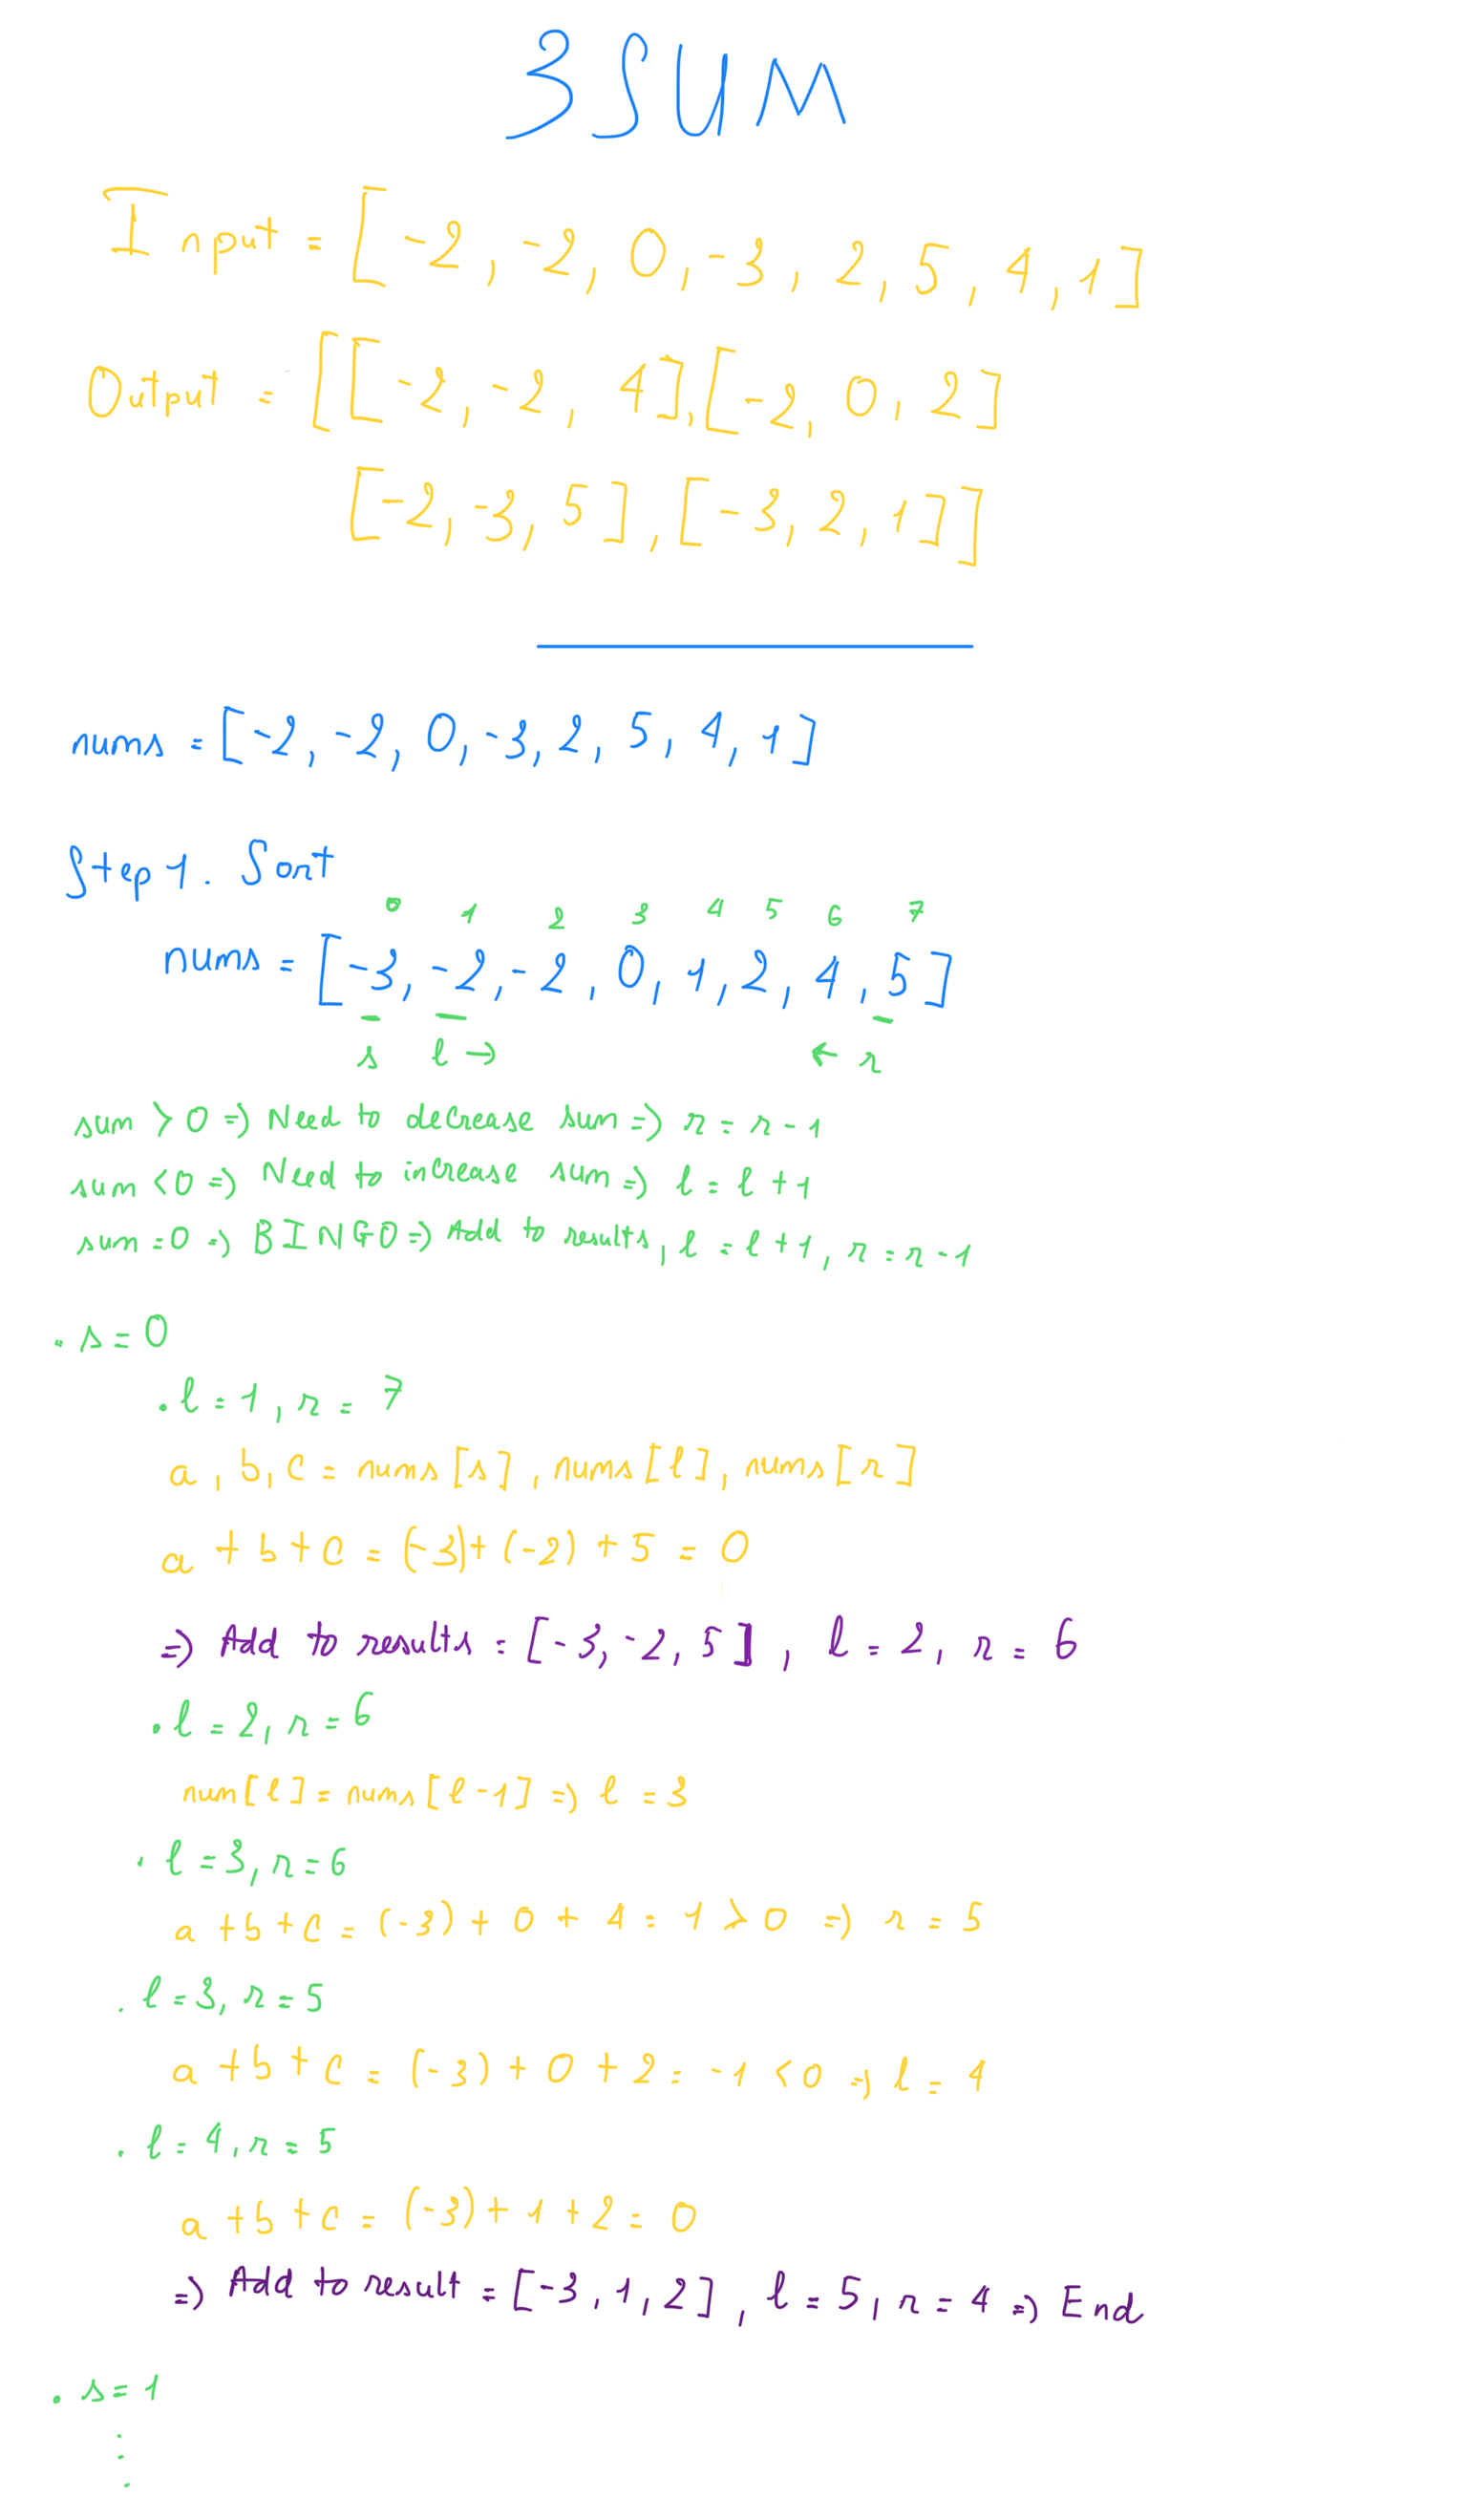 3 SUM
Input = [-2, -2, 0, -3, 2, 5, 4, 1]
Output = [[-2, -2, 4], [-2, 0, 2]
[-2, -3, 5], [-3, 2, 1]]
nums = [-2, -2, 0, -3, 2, 5, 4, 1]
Step 1. Sort
0 1 2 3 4 5 6 7
nums = [-3, -2, -2, 0, 1, 2, 4, 5]
s l → ← r
sum > 0 => Need to decrease sum => r = r - 1
sum < 0 => Need to increase sum => l = l + 1
sum = 0 => BINGO => Add to result, l = l + 1, r = r - 1
. s = 0
. l = 1, r = 7
a, b, c = nums[s], nums[l], nums[r]
a + b + c = (-3) + (-2) + 5 = 0
=> Add to results = [-3, -2, 5], l = 2, r = 6
. l = 2, r = 6
num[l] = nums[l-1] => l = 3
. l = 3, r = 6
a + b + c = (-3) + 0 + 4 = 1 > 0 => r = 5
. l = 3, r = 5
a + b + c = (-3) + 0 + 2 = -1 < 0 => l = 4
. l = 4, r = 5
a + b + c = (-3) + 1 + 2 = 0
=> Add to result = [-3, 1, 2], l = 5, r = 4 => End
. s = 1
.
.
.